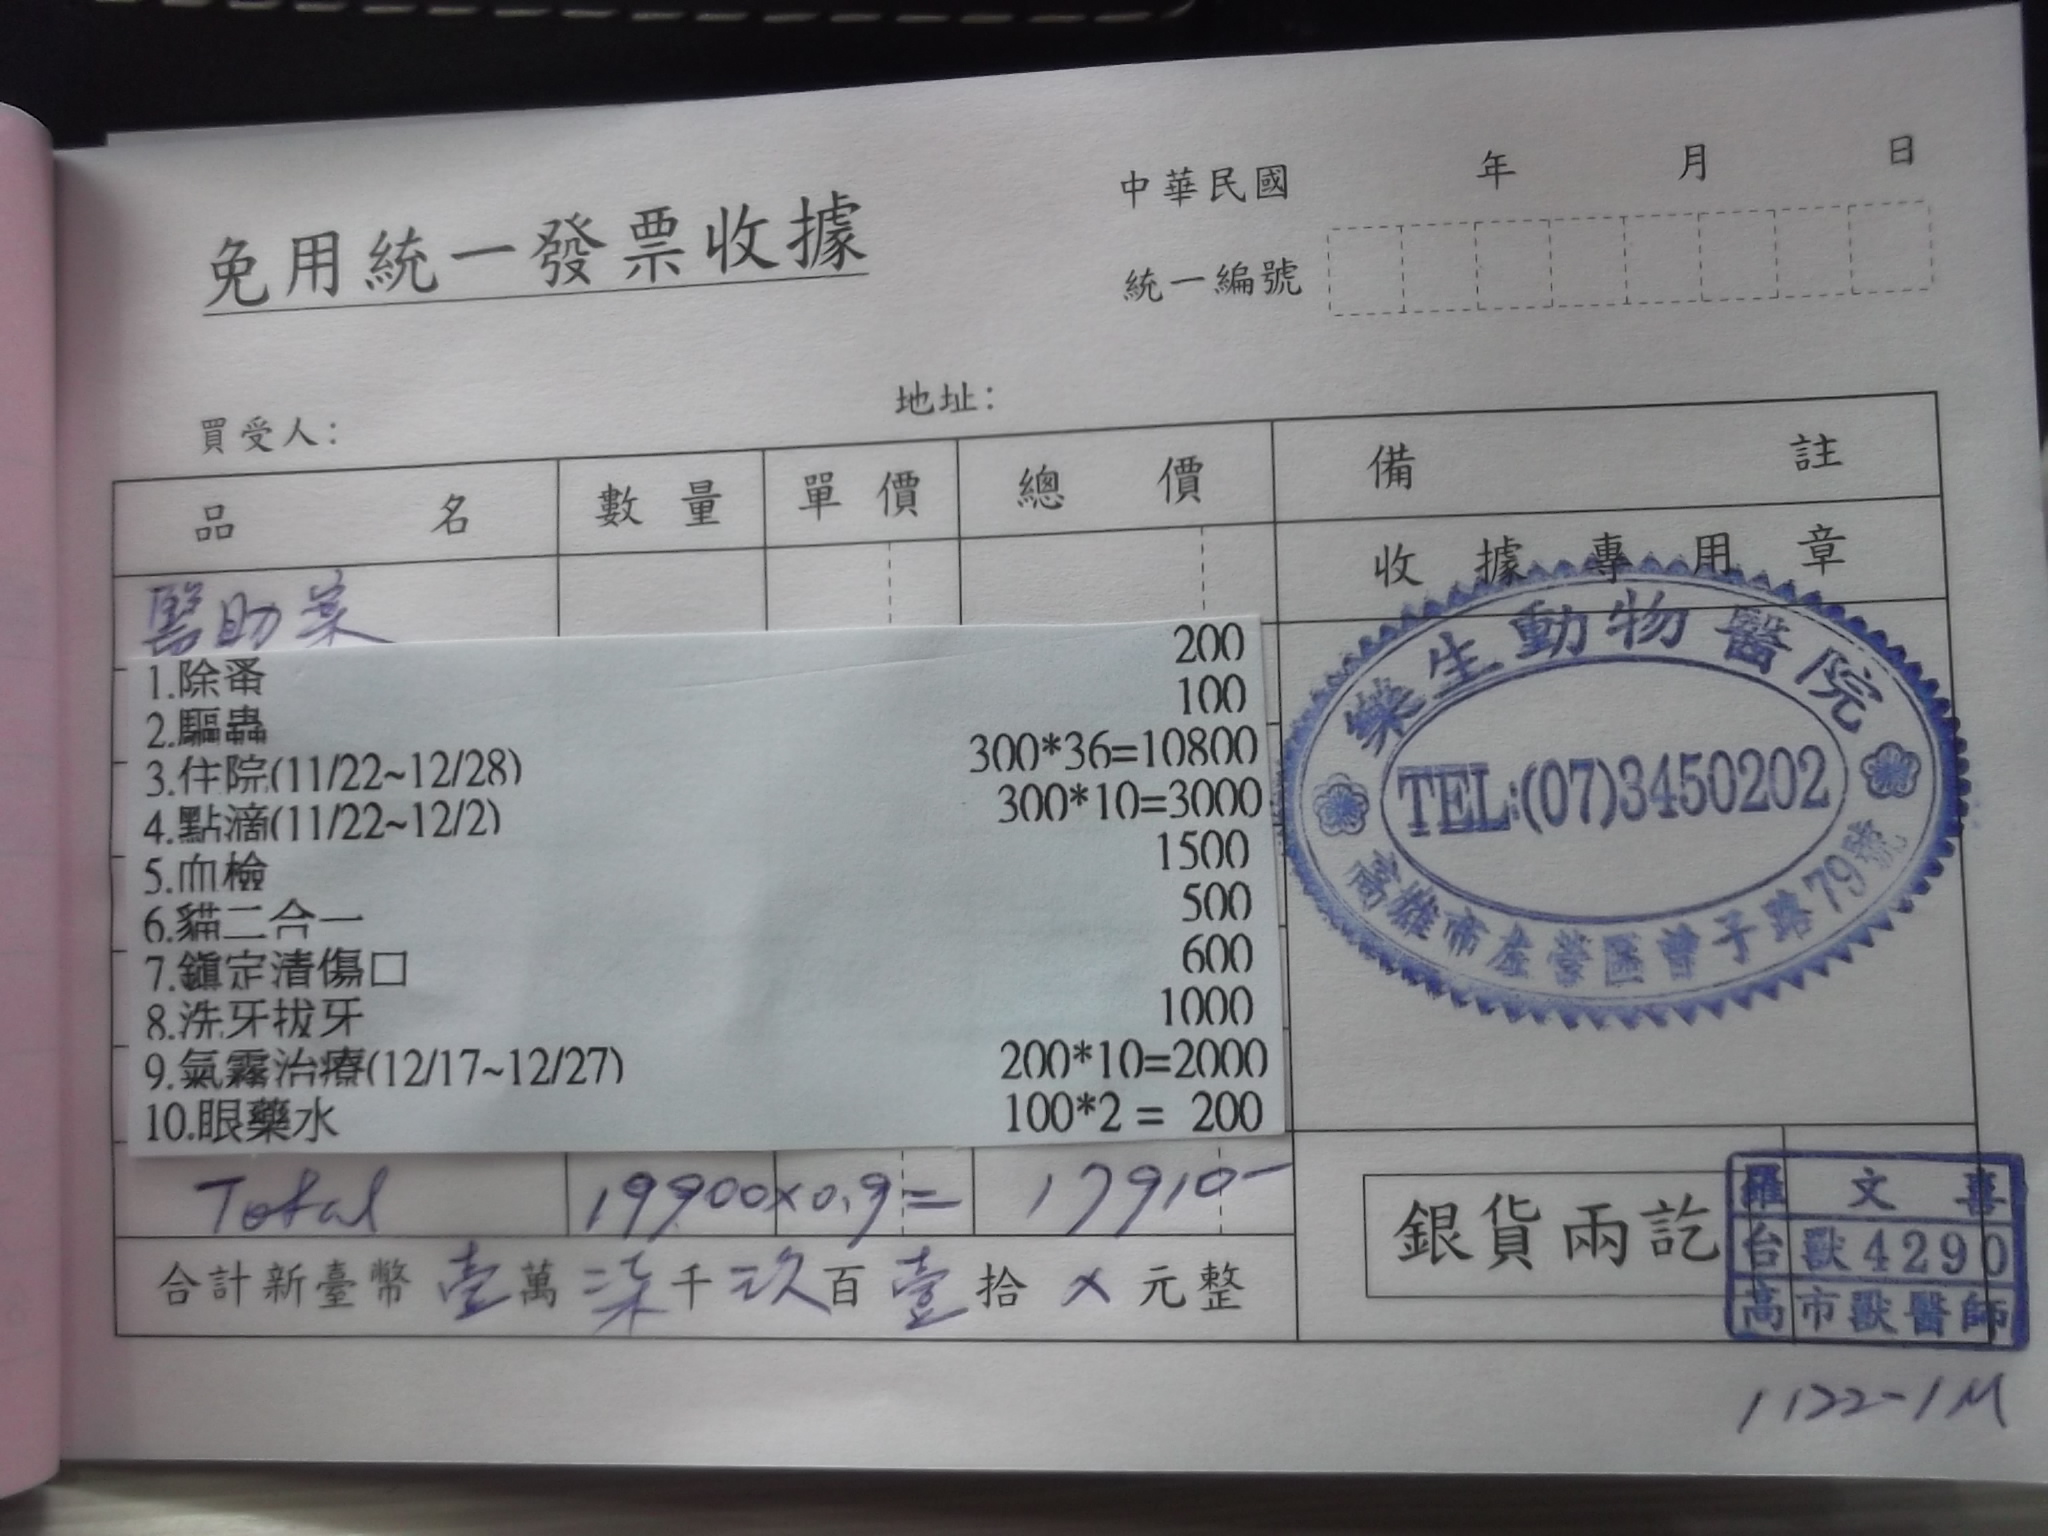 中華民國 年 月 日
免用統一發票收據
統一編號
買受人: 地址:
品名 數量 單價 總價 備註
收據專用章
醫助葉
1.除蚤 200
2.驅蟲 100
3.住院(11/22~12/28) 300*36=10800
4.點滴(11/22~12/2) 300*10=3000
5.血檢 1500
6.貓二合一 500
7.鎮定清傷口 600
8.洗牙拔牙 1000
9.氣霧治療(12/17~12/27) 200*10=2000
10.眼藥水 100*2 = 200
樂生動物醫院
TEL:(07)3450202
高雄市左營區曾子路79號
Total 19900x0.9= 17910-
合計新臺幣 壹萬柒千玖百壹拾x元整
銀貨兩訖
羅文喜
台獸4290
高市獸醫師
1122-1M